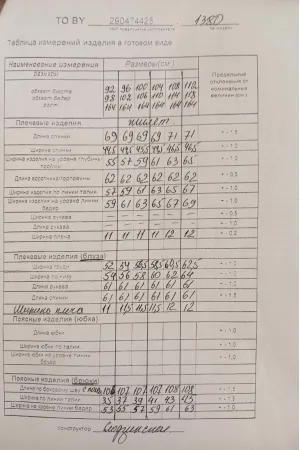 ТО BY 290474425 1380
Таблица измерений изделия в готовом виде
Наименование измерения Размеры(см) Предельные отклонения от номинальных величин (см)
размеры
обхват бюста 92 96 100 104 108 112
обхват бедер 98 102 106 110 114 118
рост 164 164 164 164 164 164
Плечевые изделия жилет
Длина спинки 69 69 69 69 71 71 +- 1.5
Ширина спинки +- 1.0
Ширина изделия на уровне глубины проймы 55 57 59 61 63 65 +- 1.0
Длина воротника/горловины 62 62 62 62 62 62 +- 0.5
Ширина изделия по линии талии 57 59 61 63 65 67 +- 1.0
Ширина изделия на уровне линии бедер 59 61 63 65 67 69 +- 1.0
Ширина рукава — +- 0.5
Длина рукава — +- 1.0
Ширина плеча 11 11 11 11 12 12 +- 0.2
Плечевые изделия (блуза)
Ширина груди +- 1.0
Ширина по низу 54 56 58 60 62 64 +- 1.0
Длина рукава 61 61 61 61 61 61 +- 1.0
Длина спинки 61 61 61 61 61 61 +- 1.5
Ширина плеча 11 11,5 11,5 11,5 12 12
Поясные изделия (юбка)
Длина юбки +- 1.0
Ширина юбки по талии +- 1.0
Ширина юбки на уровне линии бедер +- 1.0
Поясные изделия (брюки)
Длина по боковому шву 106 107 107 107 108 108 +- 1.5
Ширина по линии талии 35 37 39 41 43 45 +- 1.0
Ширина на уровне линии бедер 53 55 57 59 61 63 +- 1.0
конструктор